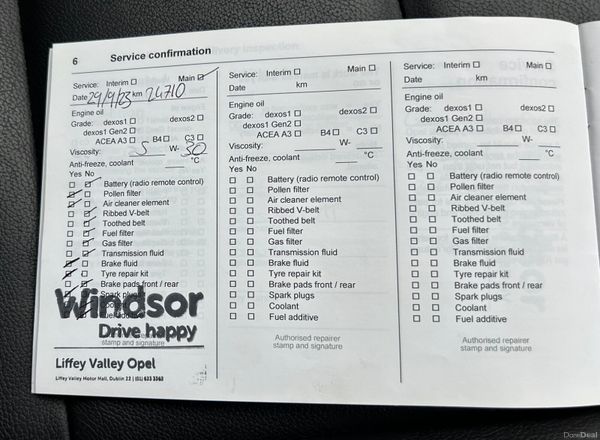 6 Service confirmation
Service: Interim ☐ Main ☑
Date 29/9/23 24710
Engine oil
Grade: dexos1 ☐ dexos2 ☐
dexos1 Gen2 ☐
ACEA A3 ☐ B4 ☐ C3 ☐
Viscosity: 5 W- 30
Anti-freeze, coolant °C
Yes No
Battery (radio remote control)
Pollen filter
Air cleaner element
Ribbed V-belt
Toothed belt
Fuel filter
Gas filter
Transmission fluid
Brake fluid
Tyre repair kit
Brake pads front / rear
Spark plugs
Windsor
Drive happy
stamp and signature
Liffey Valley Opel
Liffey Valley Motor Mall, Dublin 22 | (01) 633 3363
Service: Interim ☐ Main ☐
Date km
Engine oil
Grade: dexos1 ☐ dexos2 ☐
dexos1 Gen2 ☐
ACEA A3 ☐ B4 ☐ C3 ☐
Viscosity: W-
Anti-freeze, coolant °C
Yes No
☐ ☐ Battery (radio remote control)
☐ ☐ Pollen filter
☐ ☐ Air cleaner element
☐ ☐ Ribbed V-belt
☐ ☐ Toothed belt
☐ ☐ Fuel filter
☐ ☐ Gas filter
☐ ☐ Transmission fluid
☐ ☐ Brake fluid
☐ ☐ Tyre repair kit
☐ ☐ Brake pads front / rear
☐ ☐ Spark plugs
☐ ☐ Coolant
☐ ☐ Fuel additive
Authorised repairer
stamp and signature
Service: Interim ☐ Main ☐
Date km
Engine oil
Grade: dexos1 ☐ dexos2 ☐
dexos1 Gen2 ☐
ACEA A3 ☐ B4 ☐ C3 ☐
Viscosity: W-
Anti-freeze, coolant °C
Yes No
☐ ☐ Battery (radio remote control)
☐ ☐ Pollen filter
☐ ☐ Air cleaner element
☐ ☐ Ribbed V-belt
☐ ☐ Toothed belt
☐ ☐ Fuel filter
☐ ☐ Gas filter
☐ ☐ Transmission fluid
☐ ☐ Brake fluid
☐ ☐ Tyre repair kit
☐ ☐ Brake pads front / rear
☐ ☐ Spark plugs
☐ ☐ Coolant
☐ ☐ Fuel additive
Authorised repairer
stamp and signature
DoneDeal